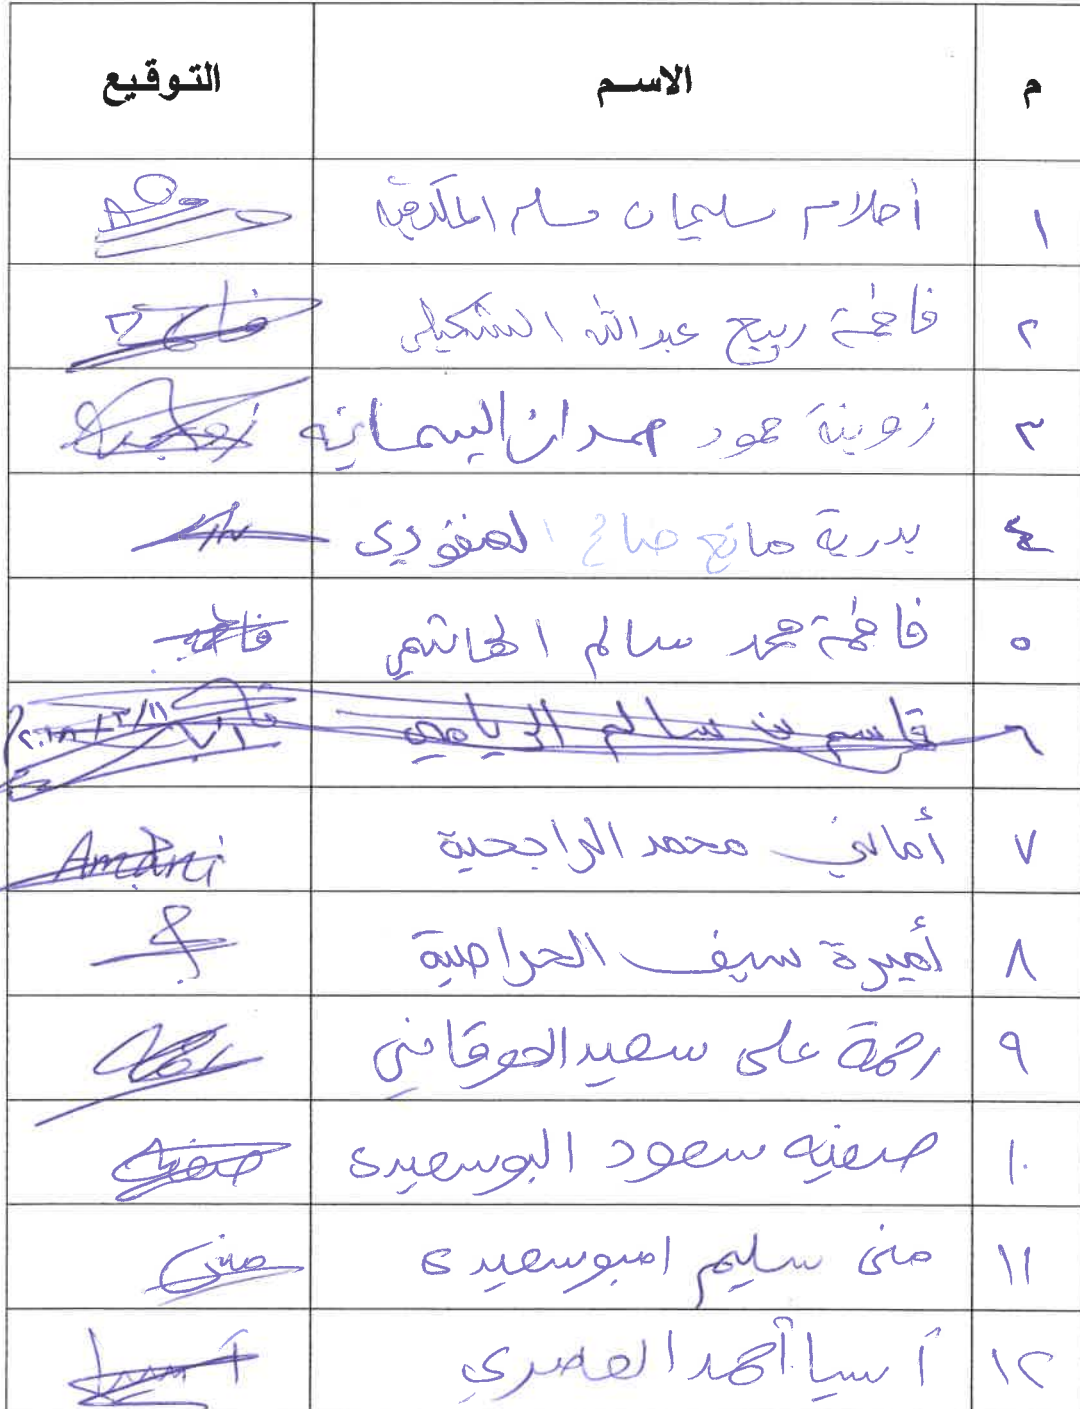 م الاسم التوقيع
١ أحلام سليمان مسلم
٢ فاطمة ربيع عبدالله الشكيلي
٣ زوينة حمود حمدان اليسمانيه
٤ بدرية مانع صالح المنفودي
٥ فاطمة محمد سالم الهاشمي فاطمة
٦ قاسم بن سالم الريامي
٧ أماني محمد الراجحية Amani
٨ أميرة سيف الحراصية
٩ رحمة على سعيد الحوقاني
١٠ صفيه سعود البوسعيدى صفيه
١١ منى سليم امبوسعيدى منى
١٢ آسيا أحمد العمري